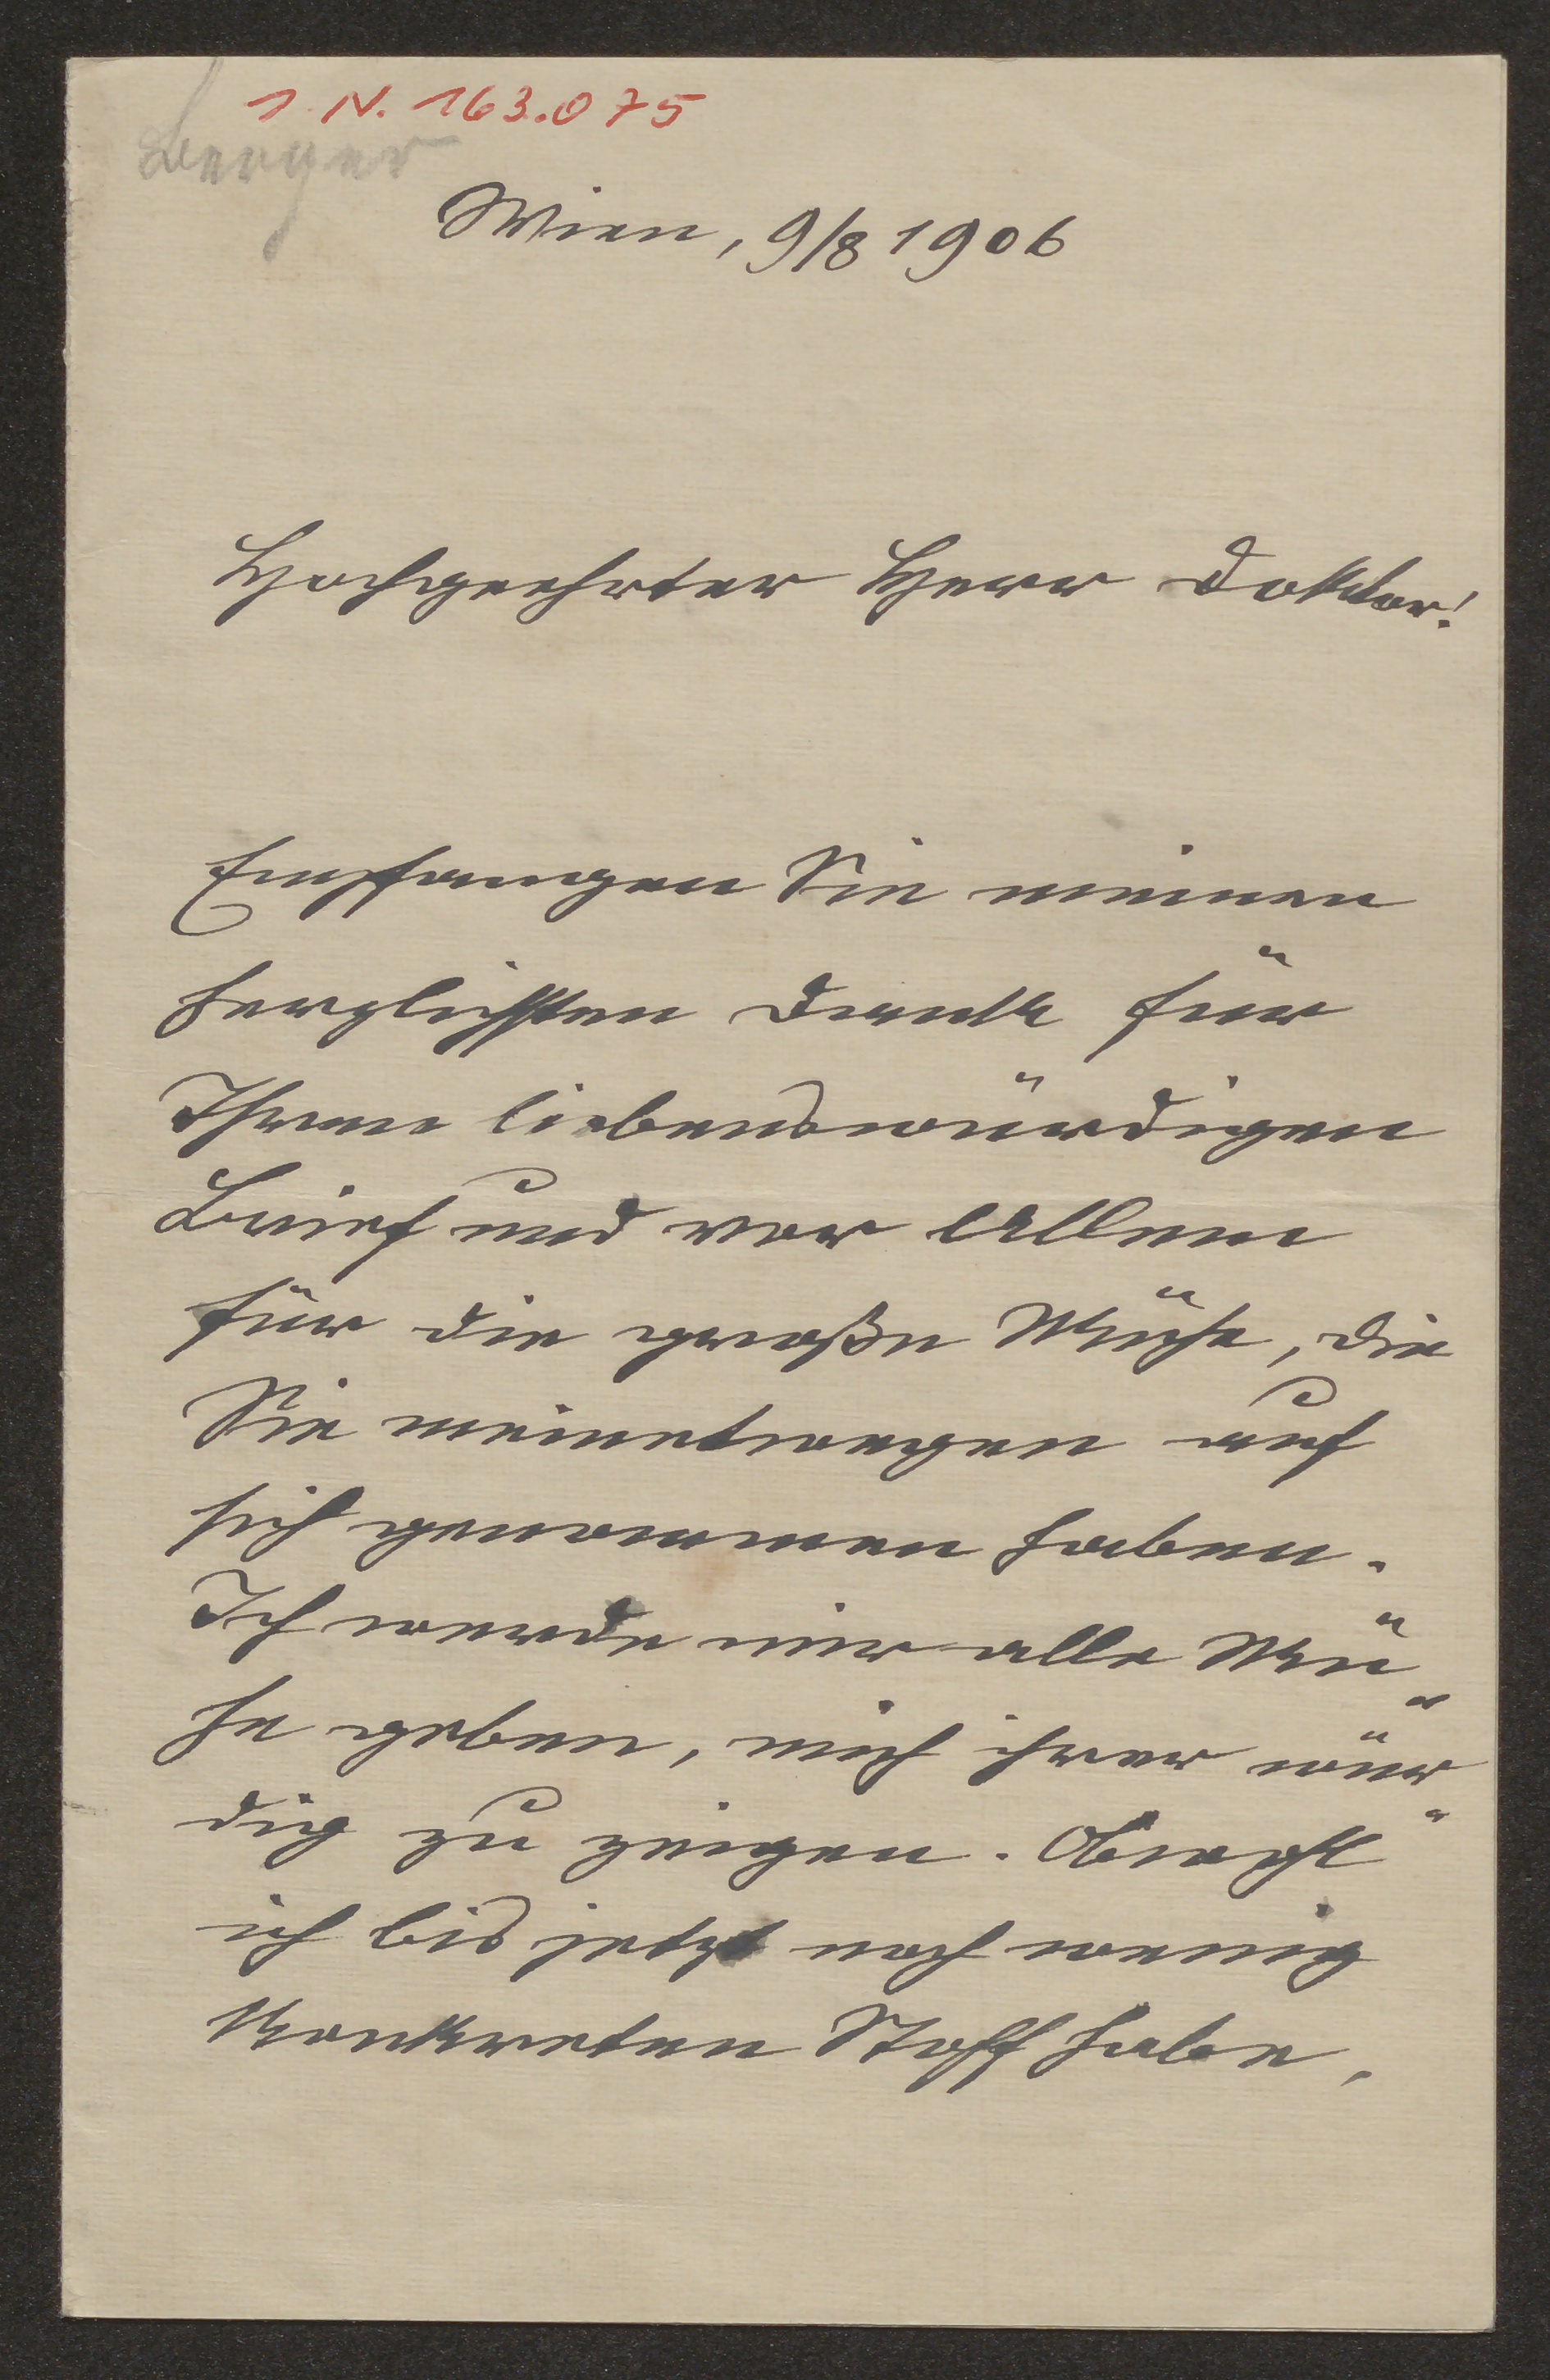 I. N. 163.075
Berger
Wien, 9/8 1906
Hochgeehrter Herr Doktor!
Empfangen Sie meinen
herzlichsten Dank für
Ihren liebenswürdigen
Brief und vor Allem
für die große Mühe, die
Sie meinetwegen auf
sich genommen haben.
Ich werde mir alle Mü-
he geben, mich ihrer wür-
dig zu zeigen. Obwohl
ich bis jetzt noch wenig
konkreten Stoff habe,